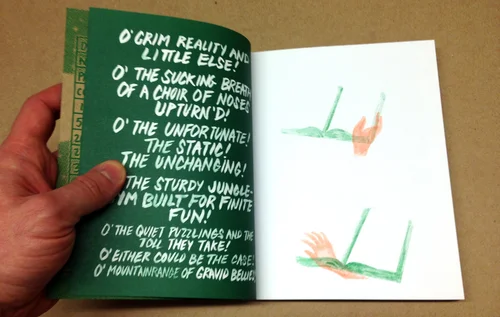 O' GRIM REALITY AND
LITTLE ELSE!
O' THE SUCKING BREATH
OF A CHOIR OF NOSES
UPTURN'D!
O' THE UNFORTUNATE!
THE STATIC!
THE UNCHANGING!
THE STURDY JUNGLE-
IM BUILT FOR FINITE
FUN!
O' THE QUIET PUZZLINGS AND THE
TOLL THEY TAKE!
O' EITHER COULD BE THE CASE!
O' MOUNTAINRANGE OF GRAVID BELLIES